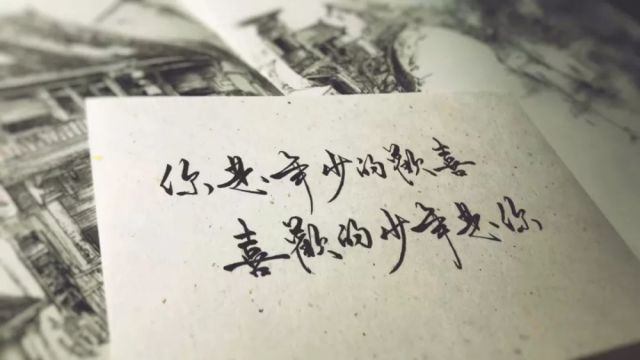 你是年少的歡喜
喜歡的少年是你